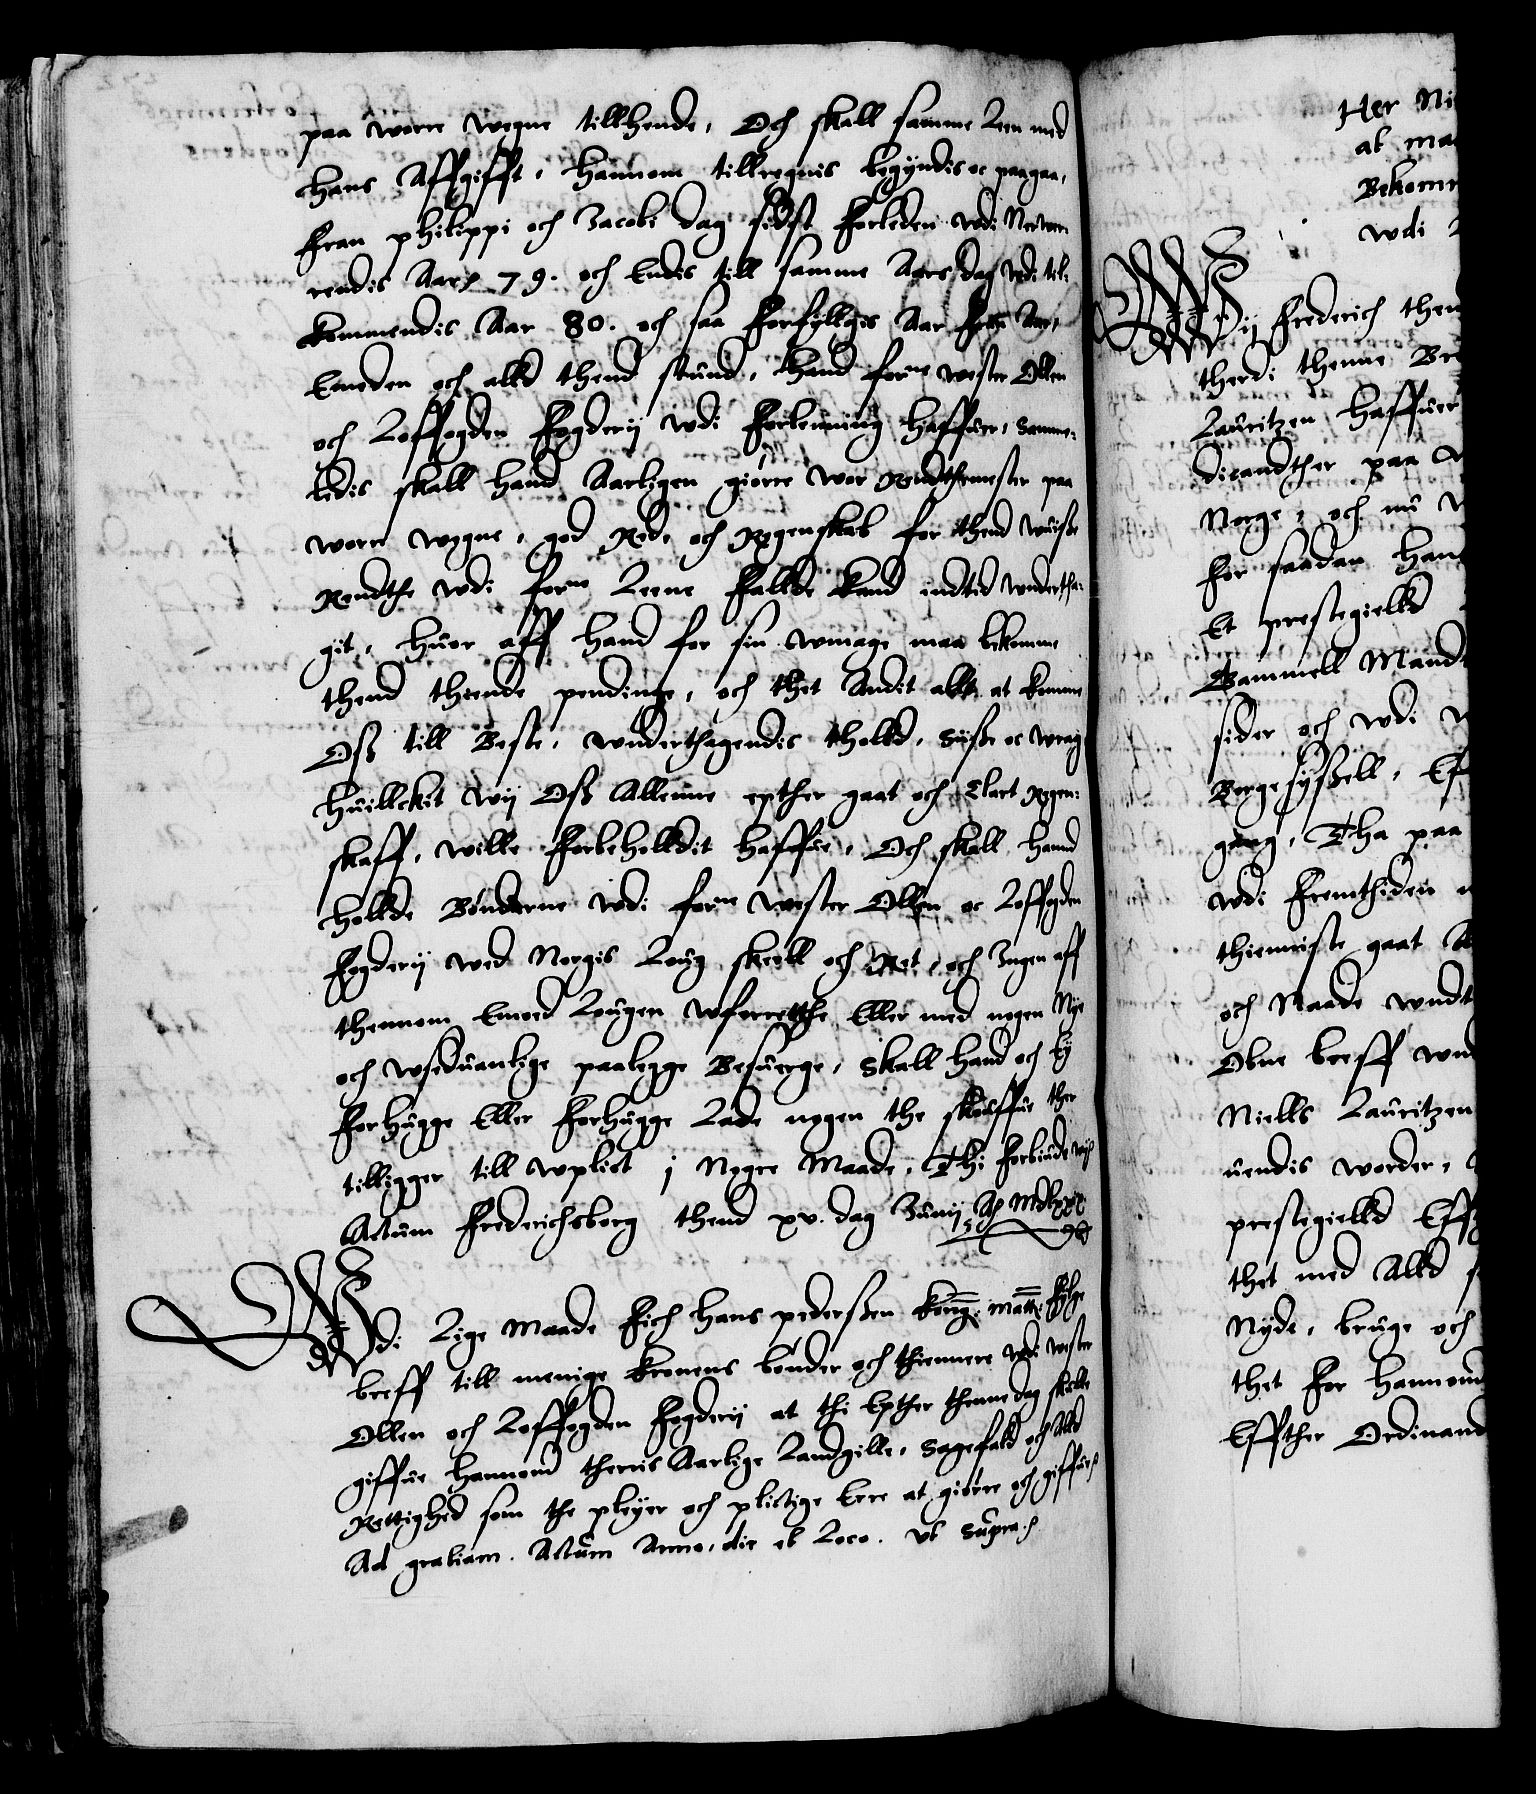 paa worre wegne tillhende, Och skall samme Leen med
hans Affgifft, hannom tillregnis begyndis oc paagaa,
Fran philippi och Jacobi dag sidst forleden wdi Nerwe-
rendis Aar 79. och Endis till samme Aars dag wdi til-
kommendis Aar 80. och saa forfyllgis Aar fran Aar,
Emeden och alld thend stund, hand forne wester Ollen
och Loffogden Fogderij wdi Forlenning haffuer, Samme-
ledis skall hand Aarligen giörre wor Rendthemester paa
worre wegne, god Rede och Regenskab for thend wuisse
Rendthe wdi forne Leene Fallde kand indtid wndertha-
git, huor aff hand for sin wmage maa bekomme
thend thiende pendinge, och thet Andit allt at komme
Oss till Beste, wnderthagendis tholld, Siisse oc wrag
huilckit wij Oss Allenne epther gaat och Clart Regen-
skaff, wille Forbeholldit haffue, Och skall hand
hollde Bönderne wdi forne wester Ollen oc Loffogden
Fogderij wed Norgis Loug skeell och Ret, och Ingen aff
thennom Emod Lougen wforretthe Eller med nogen Nye
och wseduanlige paalegge Besuerge, Skall hand och ey
Forhugge Eller Forhugge Lade nogen the skouffue ther
tilligger till wplict j Nogre Maade, Thi Forbiude wij
Actum Frederichsborg thend xv. dag Junij Ao Mdlxxx
1579
Wdi Lige Maade Fich hans pederssen Kong: Matt: Fölge
breff till menige Kronens bönder och thiennere wdi wester
Ollen och Loffogden Fogderij at thi Epther thenne dag skulle
giffue hannom therris Aarlige Landgille, Sagefald och Alld
Rettighed som the pleyer och plictige Ere at giörre och giffue
Ad gratiam. Actum Anno, die et Loco. Ut Supra.
Her Ni
at ma
Bekom
wdi
Wij Frederich then
therdi thenne Br
Lauritzen haffuer
dicandther paa
Norge, och nu
for saadan han
Et prestegielld
Gammell Mand
sider och wdi
Borgesyssell, Ef
gang, Tha paa
wdi Fremthiden
thienniste gaat
och Naade wndt
Obne breff wn
Niells Lauritzen
uendis worder,
prestegielld Eff
thet med Alld
Nyde, bruge och
thet for hannom
Effther Ordinand